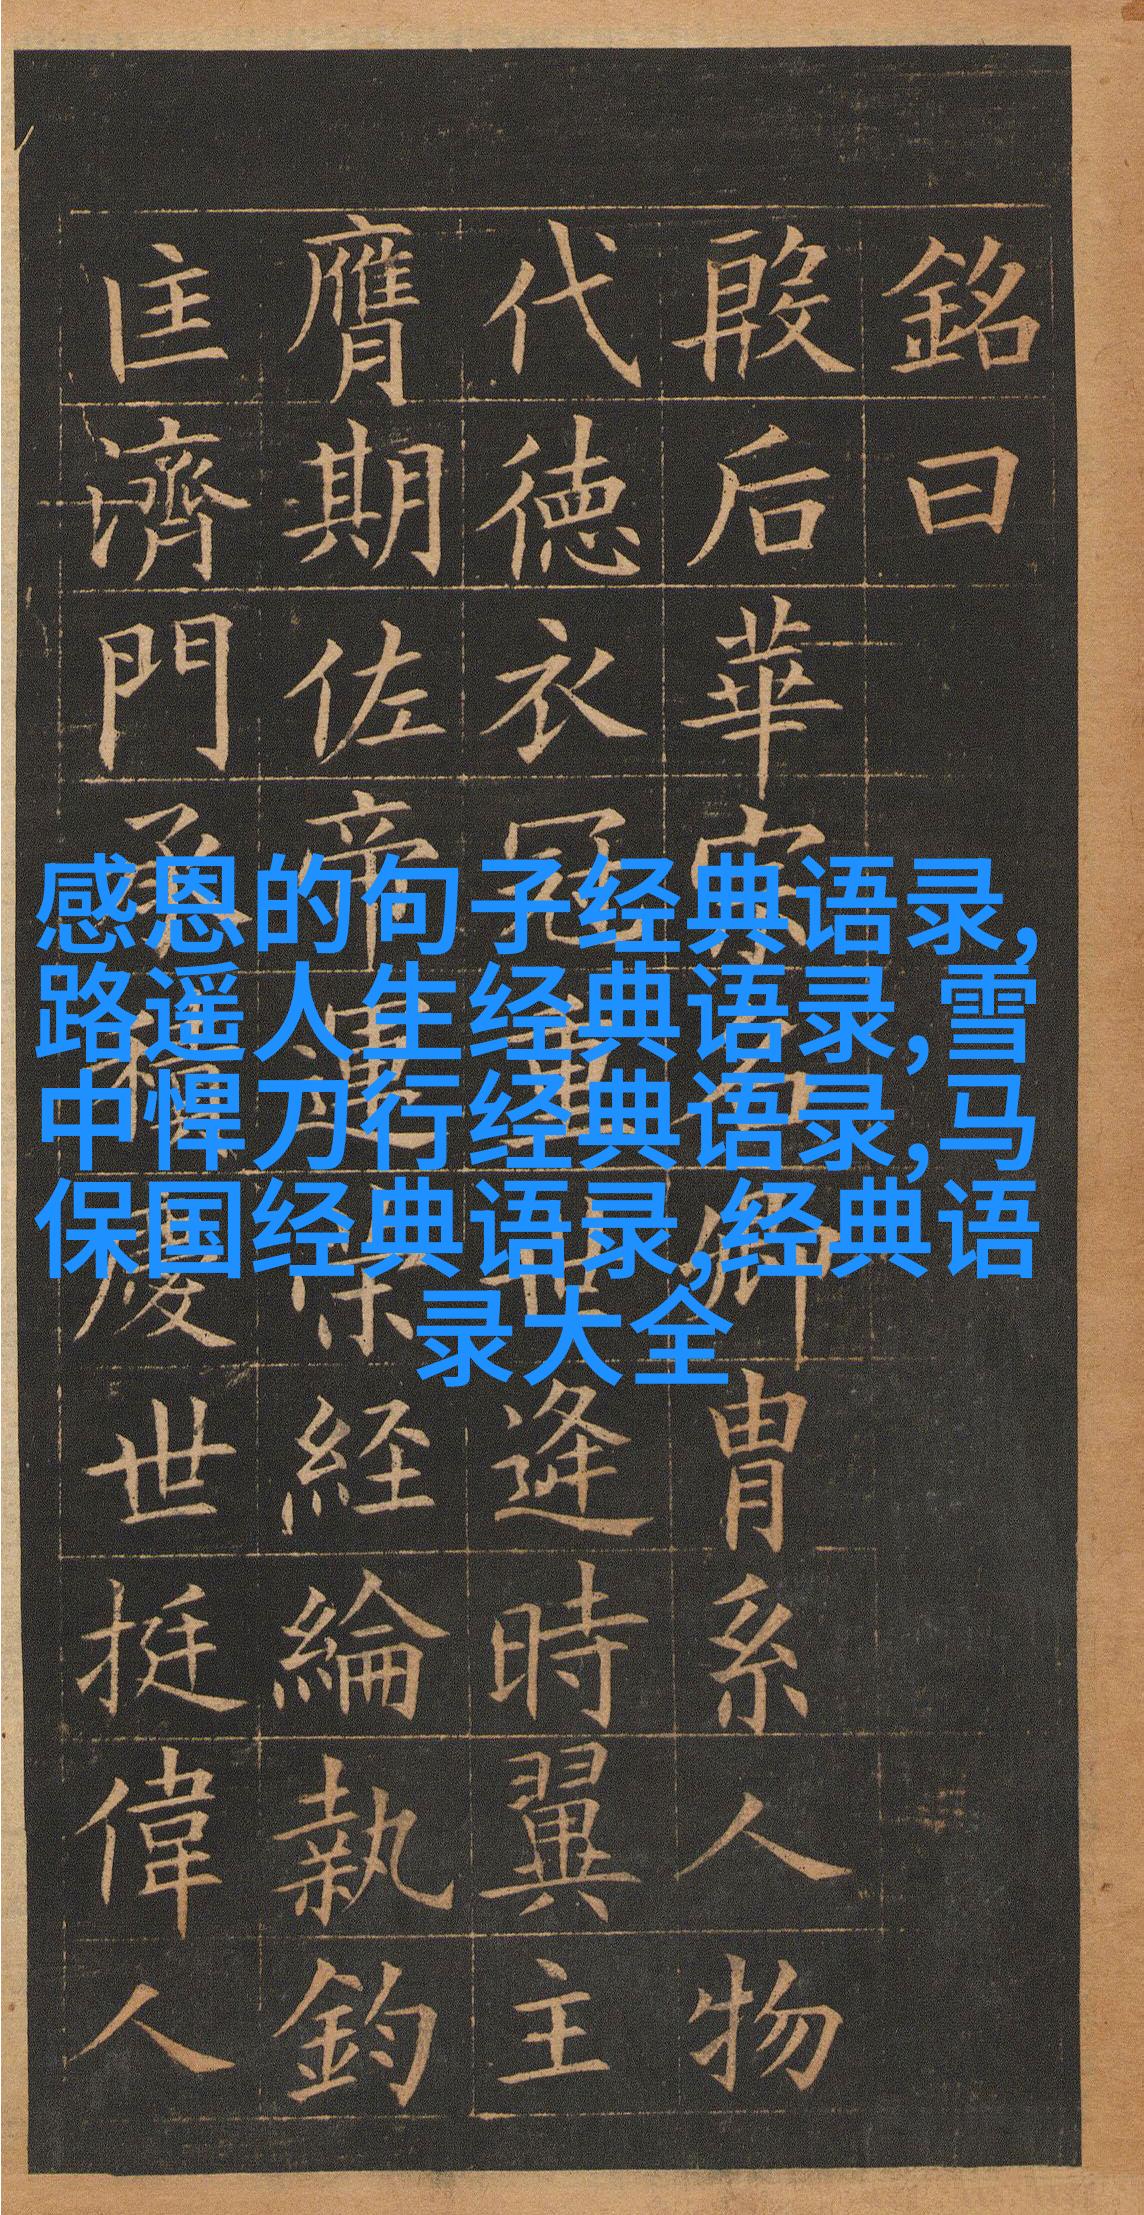 銘曰
殷后華宗名卿胄系人物
代德衣冠重世逢時翼主
膺期佐帝運策經綸執鈞
匡濟門承積慶世挺偉人
感恩的句子经典语录,
路遥人生经典语录,雪
中悍刀行经典语录,马
保国经典语录,经典语
录大全